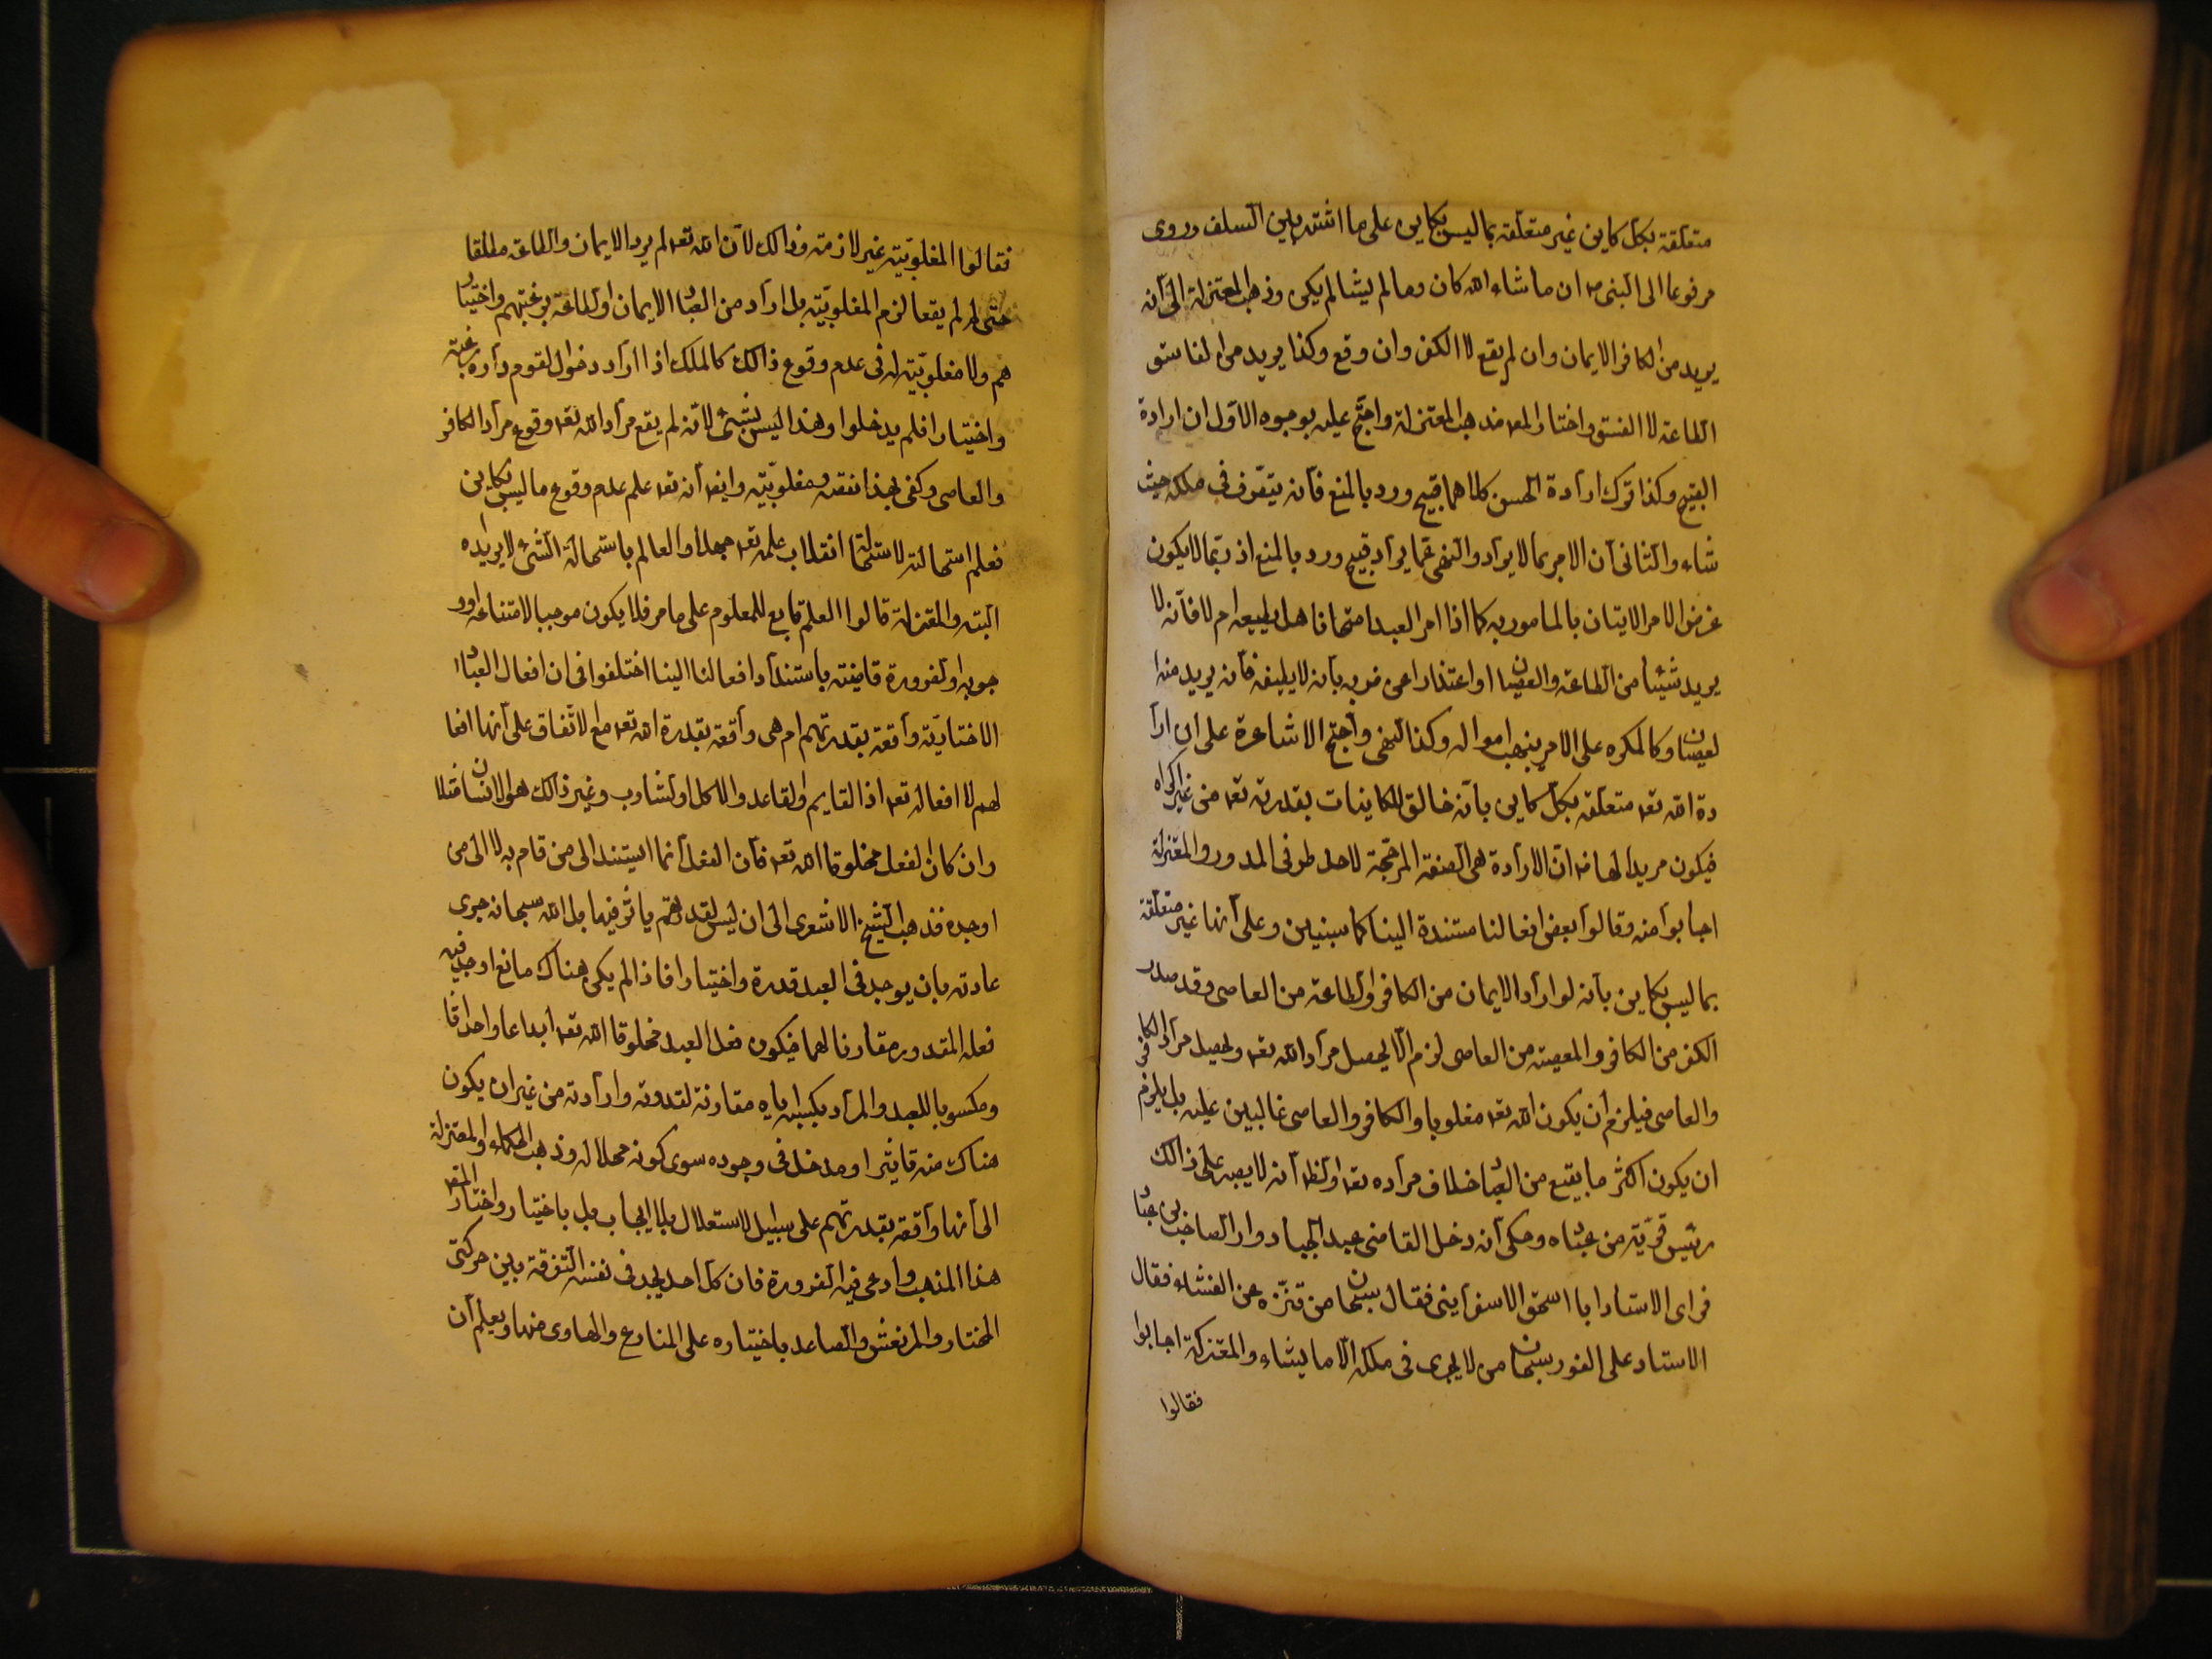 متعلقة بكل كاين غير متعلقة بما ليس بكاين على ما اشتهر بين السلف وروى
مرفوعا الى النبى ان ما شاء الله كان وما لم يشا لم يكن وذهب المعتزلة الى انه
يريد من الكافر الايمان وان لم يقع لا الكفر وان وقع وكذا يريد من الفاسق
الطاعة لا الفسق واختار المص مذهب المعتزلة واحتج عليه بوجوه الاول ان ارادة
القبيح وكذا ترك ارادة الحسن كلاهما قبيح ورد بالمنع فانه يتصرف فى ملكه حيث
شاء والثانى ان الامر بما لا يراد والنهى عما يراد قبيح ورد بالمنع اذ ربما لا يكون
غرض الامر الاتيان بالمامور به كما اذا امر العبد امتحانا هل يطيعه ام لا فانه لا
يريد شيئا من الطاعة والعصيان او اعتذارا عن ضربه بانه لا يطيعه فانه يريد منه
لعصيان وكالمكره على الامر بنهب امواله وكذا النهى واحتج الاشاعرة على ان ارا
دة الله تعه متعلقه بكل كاين بانه خالق الكاينات بقدرته تعه من غير اكراه
فيكون مريدا لها ان الارادة هى الصفة المرجحة لاحد طرفى المقدور والمعتزلة
اجابوا منه وقالوا بعض افعالنا مستندة الينا كما سنبين وعلى انها غير متعلقة
بما ليس بكاين بانه لو اراد الايمان من الكافر والطاعة من العاصى وقد صدر
الكفر من الكافر والمعصية من العاصى لزم الا يحصل مراد الله تعه ويحصل مراد الكافر
والعاصى فيلزم ان يكون الله تعه مغلوبا والكافر والعاصى غالبين عليه بل يلزم
ان يكون اكثر ما يقع من العباد خلاف مراده تعه والظ انه لا يصبر على ذالك
رئيس قرية من عباده وحكى انه دخل القاضى عبد الجبار دار الصاحب بن عباد
فراى الاستاد ابا اسحق الاسفراينى فقال سبحان من تنزه عن الفحشاء فقال
الاستاد على الفور سبحان من لا يجرى فى ملكه الا ما يشاء والمعتزلة اجابوا
فقالوا
فقالوا المغلوبية غير لازمة وذالك لان الله تعه لم يرد الايمان والطاعة مطلقا
حتى لو لم يقعا لزم المغلوبية بل اراد من العباد الايمان والطاعة برغبتهم واختيار
هم ولا مغلوبية له فى عدم وقوع ذالك كالملك اذا اراد دخول القوم داره رغبة
واختيارا فلم يدخلوا وهذا ليس بشئ لانه لم يقع مراد الله تعه ووقوع مراد الكافر
والعاصى وكفى بهذا نقصه ومغلوبية وايضا انه تعه علم عدم وقوع ما ليس بكاين
فعلم استحالته لاستحالة انقلاب علمه تعه جهلا والعالم باستحالة الشئ لا يريده
البته والمعتزلة قالوا العلم تابع للمعلوم على ما مر فلا يكون موجبا لامتناعه او و
جوبه والضرورة قاضية باستناد افعالنا الينا اختلفوا فى ان افعال العباد
الاختيارية واقعة بقدرتهم ام هى واقعة بقدرة الله تعه مع الاتفاق على انها افعا
لهم لا افعاله تعه اذ القايم والقاعد والاكل والشارب وغير ذالك هو الانسان مثلا
وان كان الفعل مخلوقا الله تعه فان الفعل انما يستند الى من قام به لا الى من
اوجده فذهب الشيخ الاشعرى الى ان ليس لقدرتهم ياثر فيها بل الله سبحانه جرى
عادته بان يوجد فى العبد قدرة واختيارا فاذا لم يكن هناك مانع اوجد فيه
فعله المقدور مقارنا لهما فيكون فعل العبد مخلوقا الله تعه ابداعا واحداثا
ومكسوبا للعبد والمراد بكسبه اياه مقارنة لقدرته وارادته من غير ان يكون
هناك منه تاثير او مدخل فى وجوده سوى كونه محلا له وذهب الحكماء والمعتزلة
الى انها واقعة بقدرتهم على سبيل الاستقلال بلا ايجاب بل باختيار واختار المص
هذا المذهب وادعى فيه الضرورة فان كل احد يجد فى نفسه التفرقة بين حركتى
المختار والمرتعش والصاعد باختياره على المنارع والهاوى منها ويعلم ان